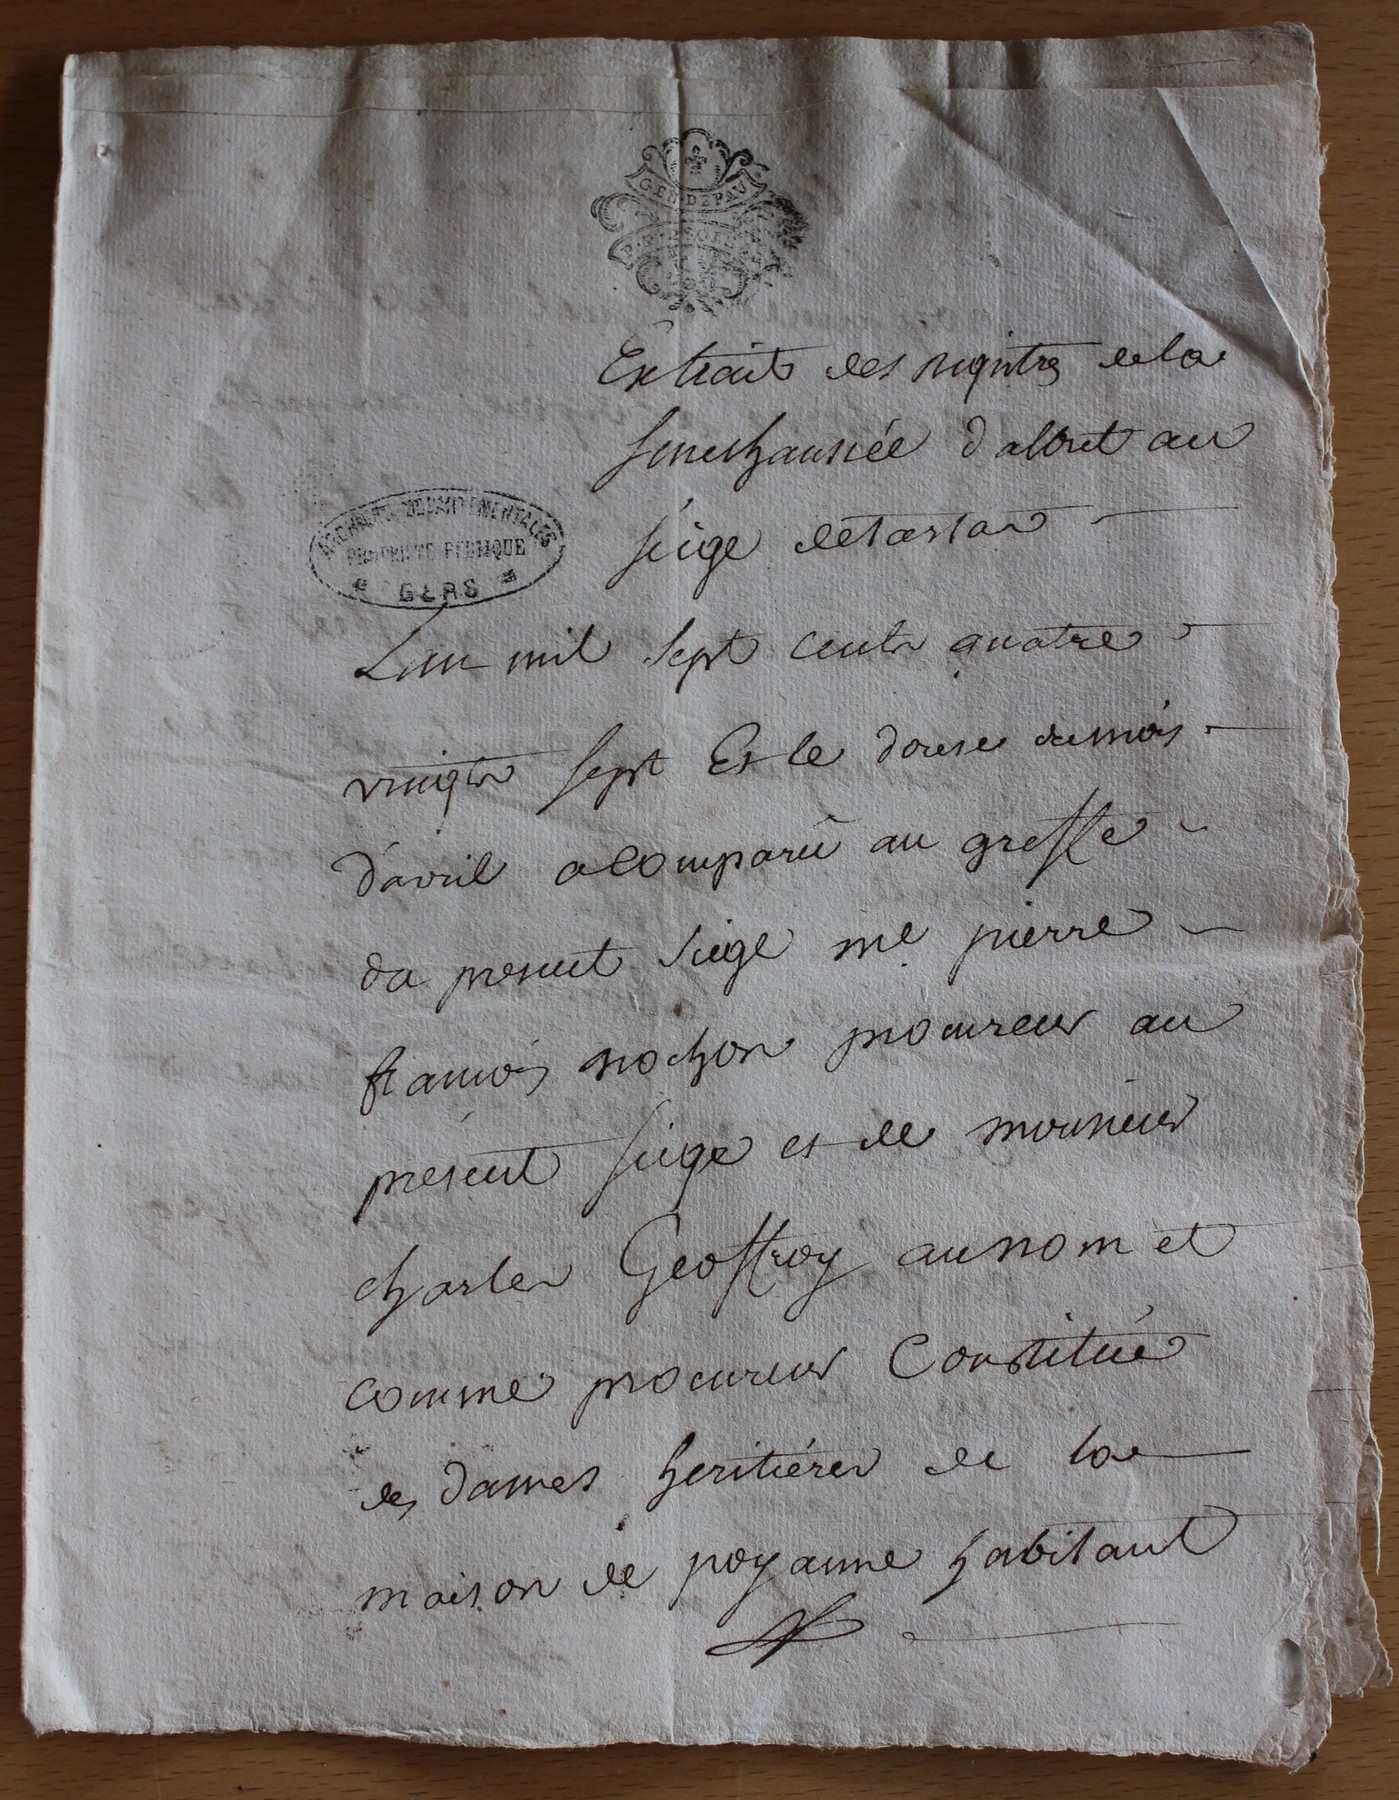 GEN DE PAU
ARCHIVES DEPARTEMENTALES
PROPRIETE PUBLIQUE
GERS
Extrait des registres de la
senechaussée d'albret au
siege de tartas
L'an mil sept cents quatre
vingts sept Et le douse du mois
d'avril a Comparû au greffe
du present siege me pierre
francois nochon procureur au
present siege et de monsieur
charles Geoffroy au nom et
comme procureur Constitué
des dames heritiéres de la
maison de poyanne habitant